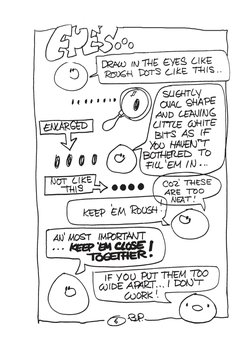 EYES...
DRAW IN THE EYES LIKE
ROUGH DOTS LIKE THIS..
SLIGHTLY
OVAL SHAPE
AND LEAVING
LITTLE WHITE
BITS AS IF
YOU HAVEN'T
BOTHERED TO
FILL 'EM IN...
ENLARGED
NOT LIKE
THIS
COZ THESE
ARE TOO
NEAT!
KEEP 'EM ROUGH..
AN' MOST IMPORTANT
... KEEP 'EM CLOSE
TOGETHER!
IF YOU PUT THEM TOO
WIDE APART... I DON'T
WORK!
6
B.P.